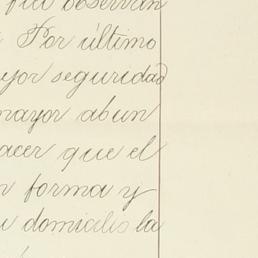 fiel observan
Por último
yor seguridad
mayor abun
acer que el
n forma y
u domicilio la